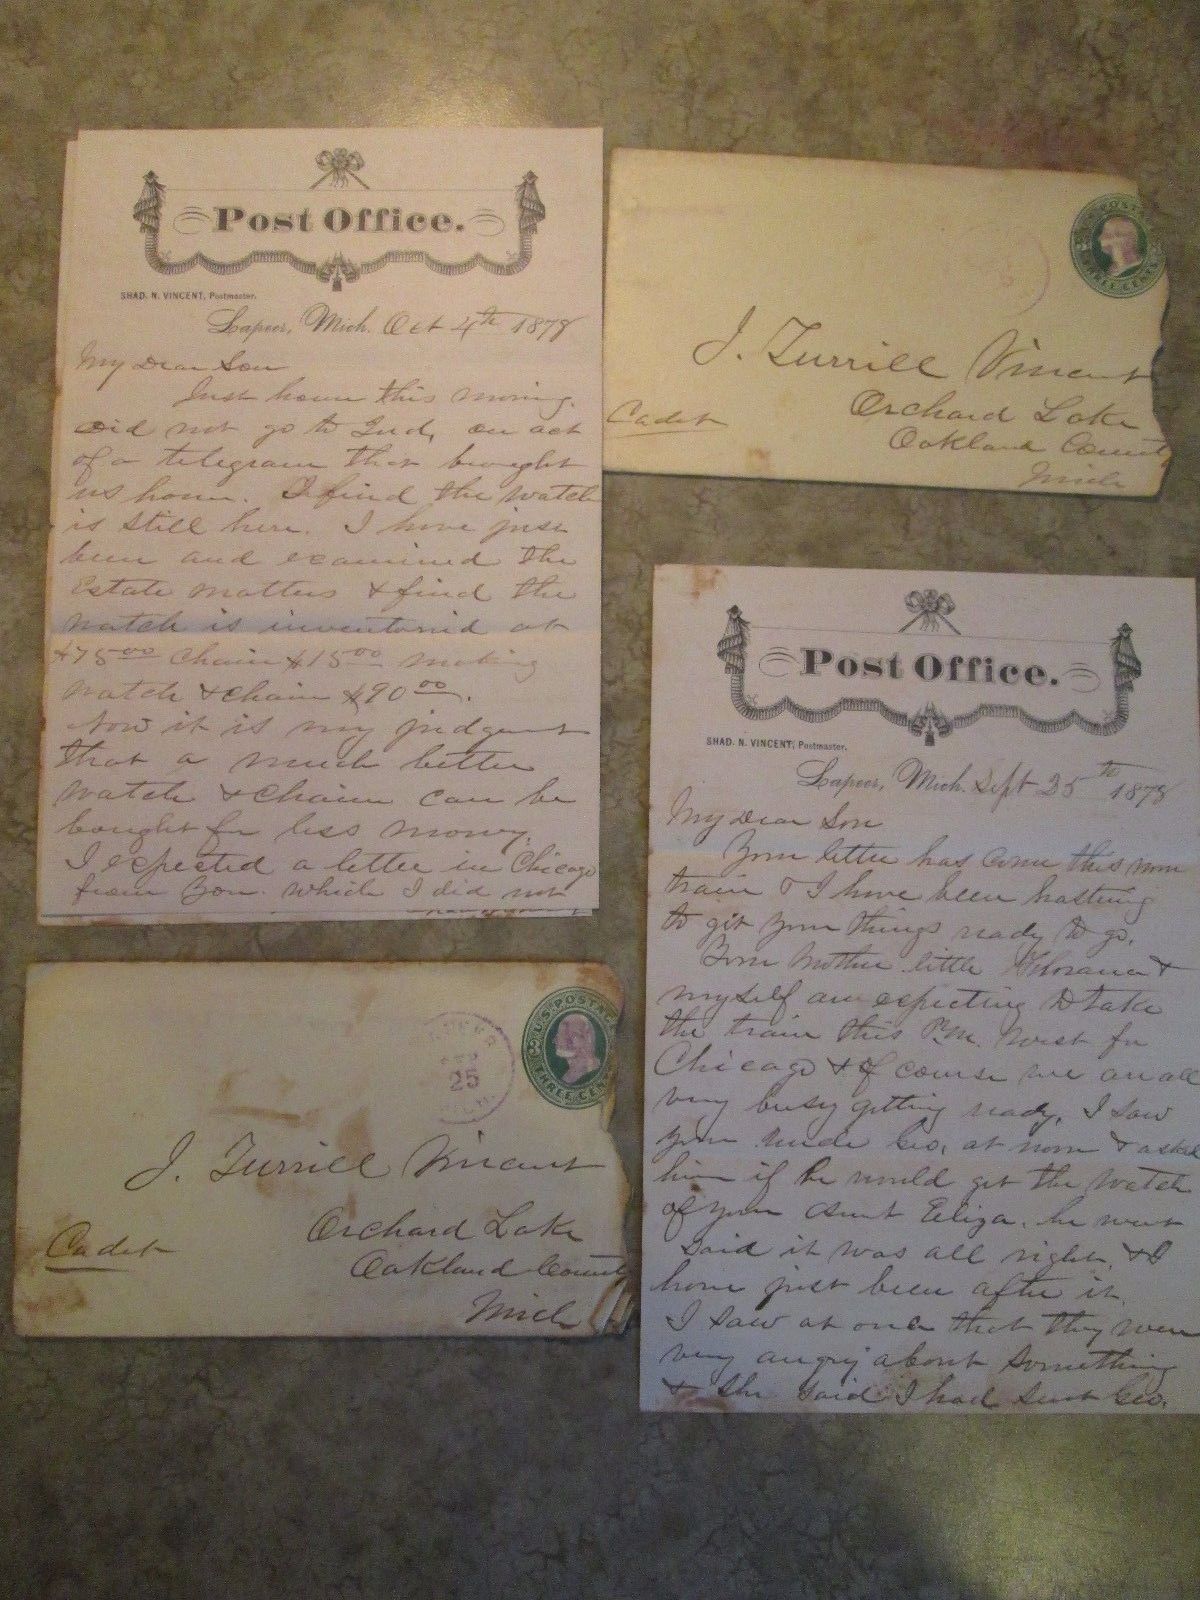 Post Office.
SHAD. N. VINCENT, Postmaster.
Lapeer, Mich. Oct 4th 1878
My Dear Son
Just home this morning.
Did not go to Ind, on act
of a telegram that brought
us home. I find the watch
is still here. I have just
been and examined the
Estate matters & find the
watch is inventoried at
$75.00 Chain $15.00 making
watch & chain $90.00.
Now it is my judgment
that a much better
watch & chain can be
bought for less money.
I expected a letter in Chicago
from you which I did not
J. Turrill Vincent
Cadet
Orchard Lake
Oakland County
Mich
U.S. POSTAGE
THREE CENTS
LAPEER
SEP
25
MICH.
J. Turrill Vincent
Cadet
Orchard Lake
Oakland County
Mich
Post Office.
SHAD. N. VINCENT, Postmaster.
Lapeer, Mich. Sept 25th 1878
My Dear Son
Your letter has come this noon
train & I have been hastening
to get your things ready to go.
Your Mother little &
myself are expecting to take
the train this P.M. West for
Chicago & of course we are all
very busy getting ready. I saw
your Uncle Geo. at noon & asked
him if he would get the watch
of your Aunt Eliza. he went
said it was all right, & I
have just been after it.
I saw at once that they were
very angry about something
& she said I had sent Geo.